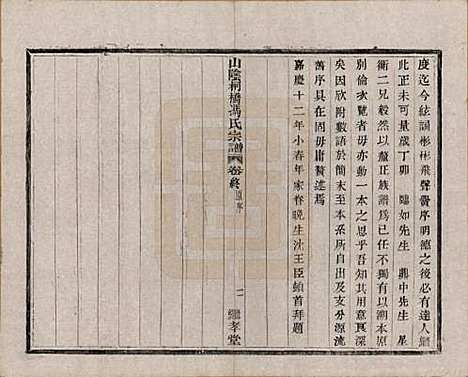 度迄今絃誦彬彬飛聲黌序明德之後必有達人繼
此正未可量歲丁卯　聽如先生　鼎中先生　星
衡二兄毅然以釐正族譜爲已任不獨有以溯本原
別倫類者毋亦動一本之思乎吾知其用意良深
矣因欣附數語于簡末至本系所自出及支分源流
舊序具在固毋庸贅述焉
嘉慶十二年小春年家眷晚生沈王臣頓首拜題
山陰桐橋馮氏宗譜　卷終
二　繼孝堂